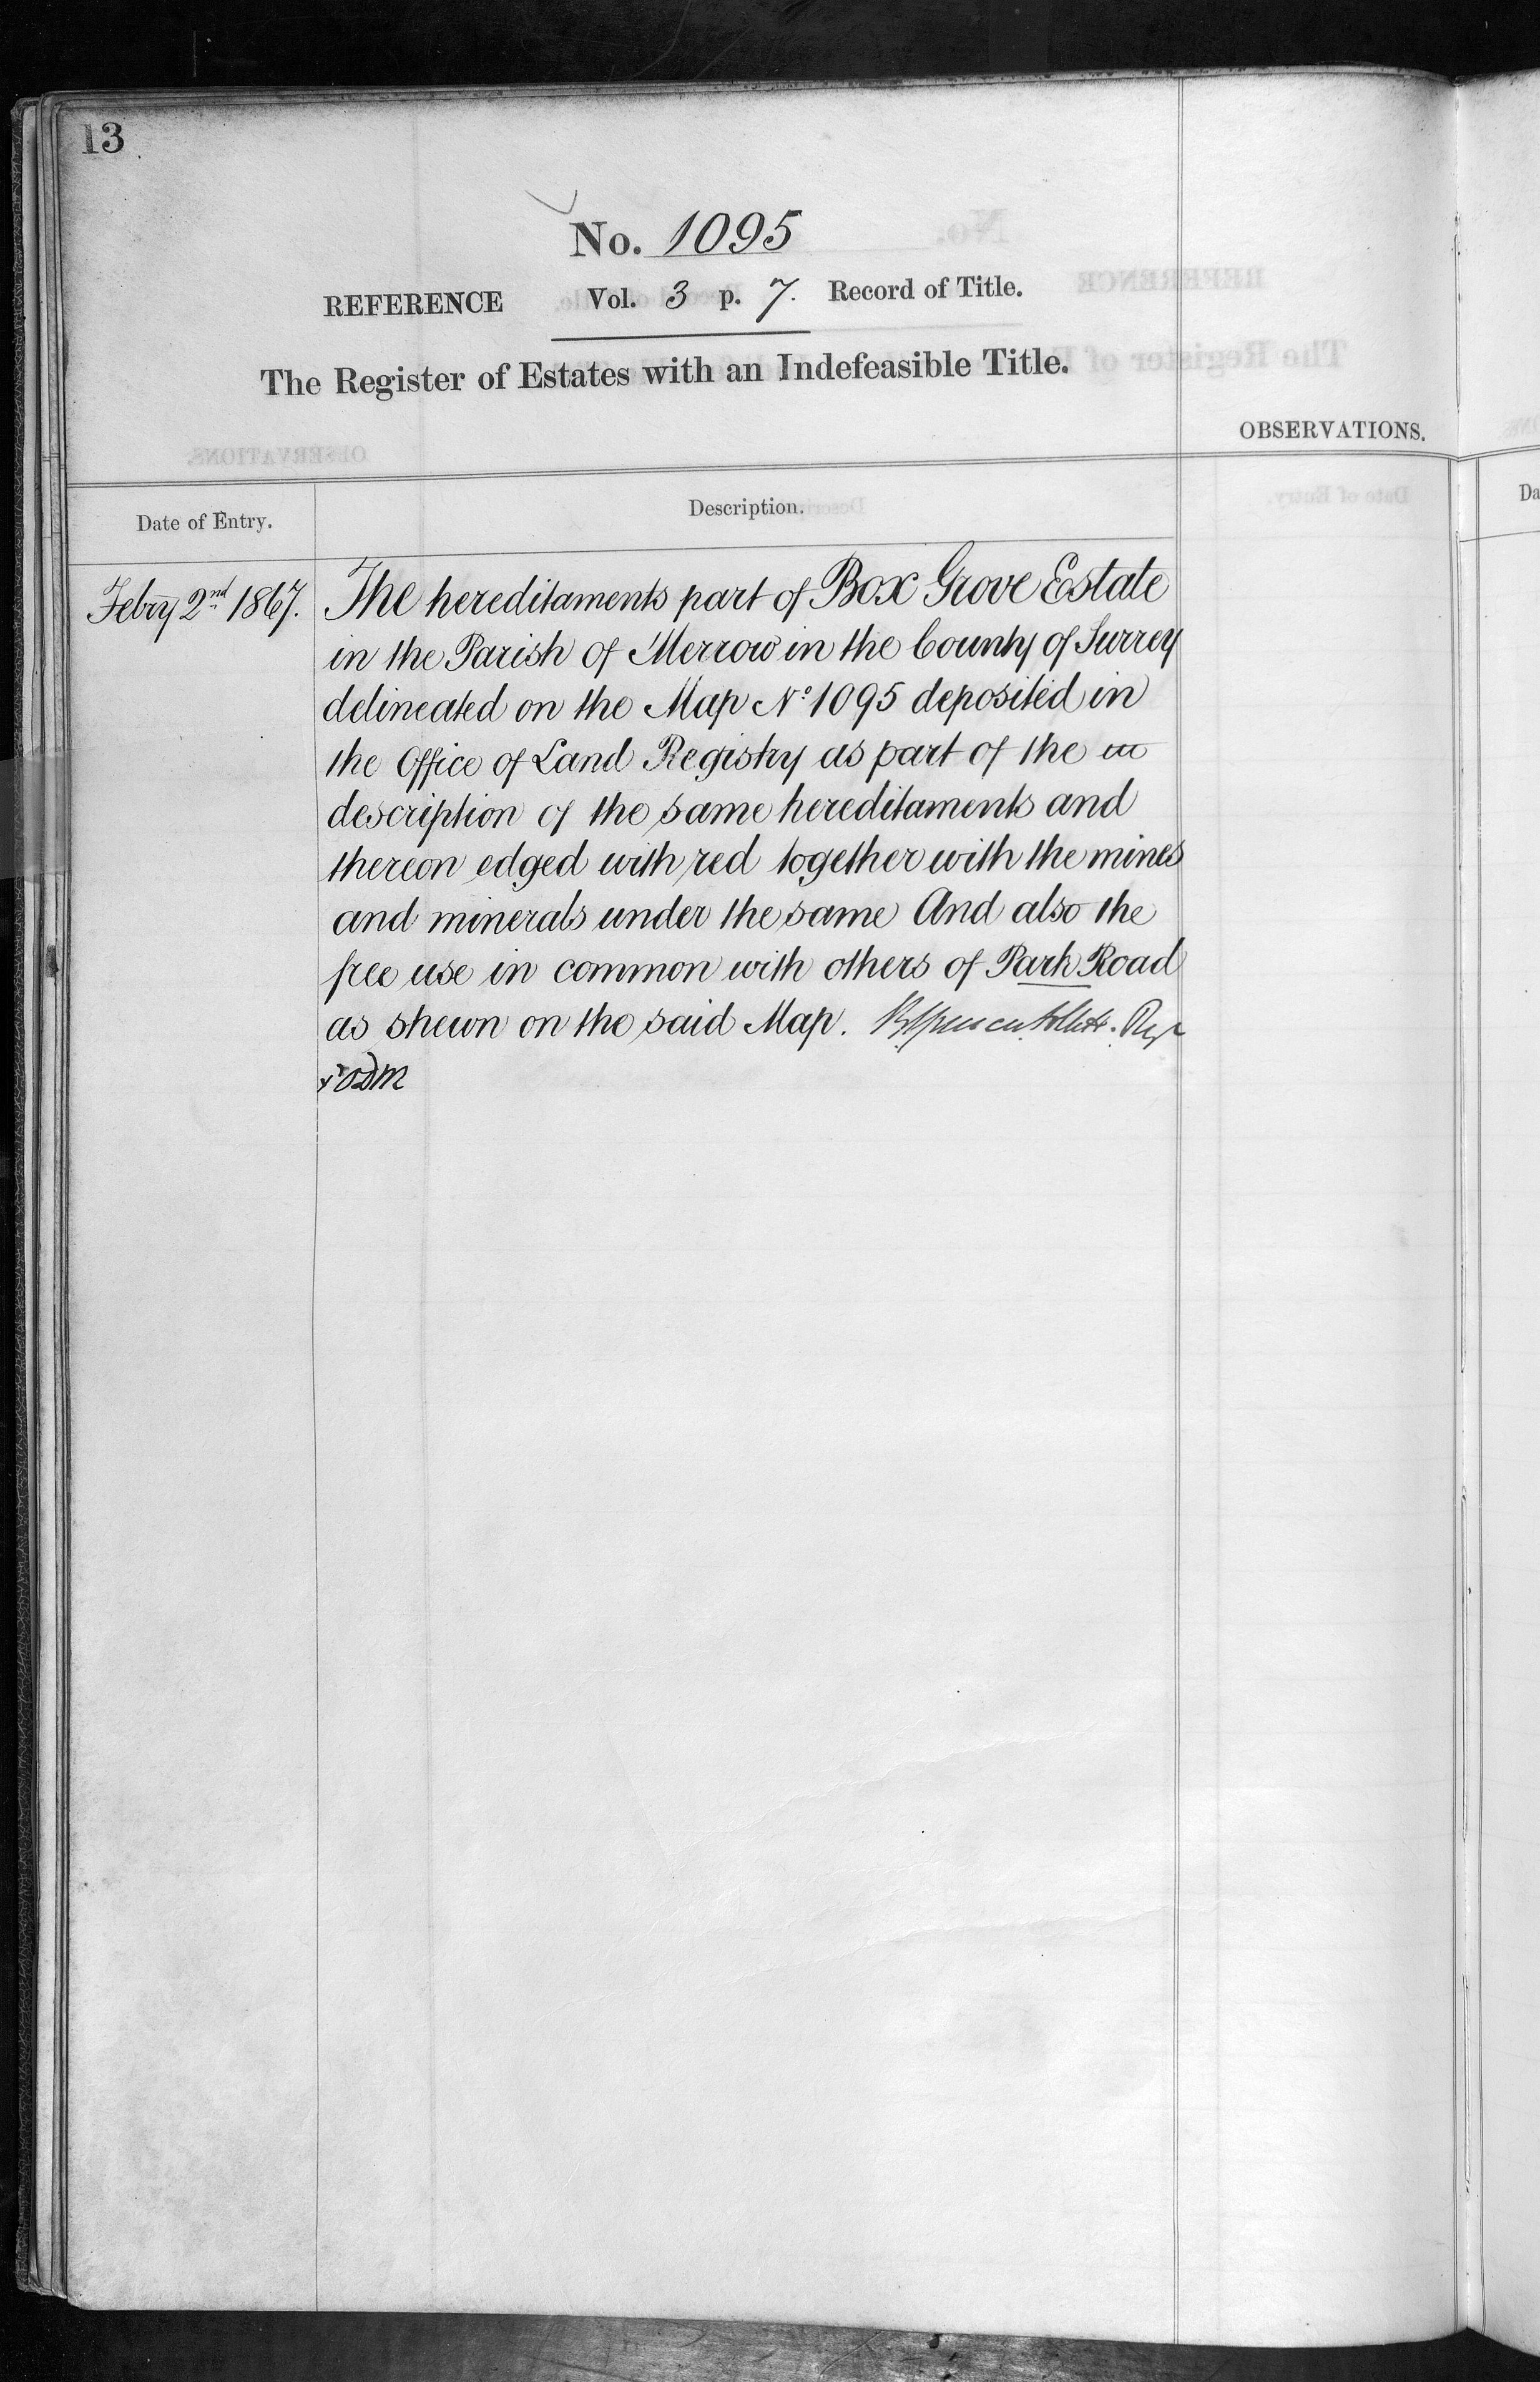 13
No. 1095
REFERENCE Vol. 3 p. 7. Record of Title.
The Register of Estates with an Indefeasible Title.
OBSERVATIONS.
Date of Entry.
Description.
Da
Febry 2nd 1867.
The hereditaments part of Box Grove Estate
in the Parish of Merrow in the County of Surrey
delineated on the Map No 1095 deposited in
the Office of Land Registry as part of the in
description of the same hereditaments and
thereon edged with red together with the mines
and minerals under the same And also the
free use in common with others of Park Road
as shewn on the said Map.